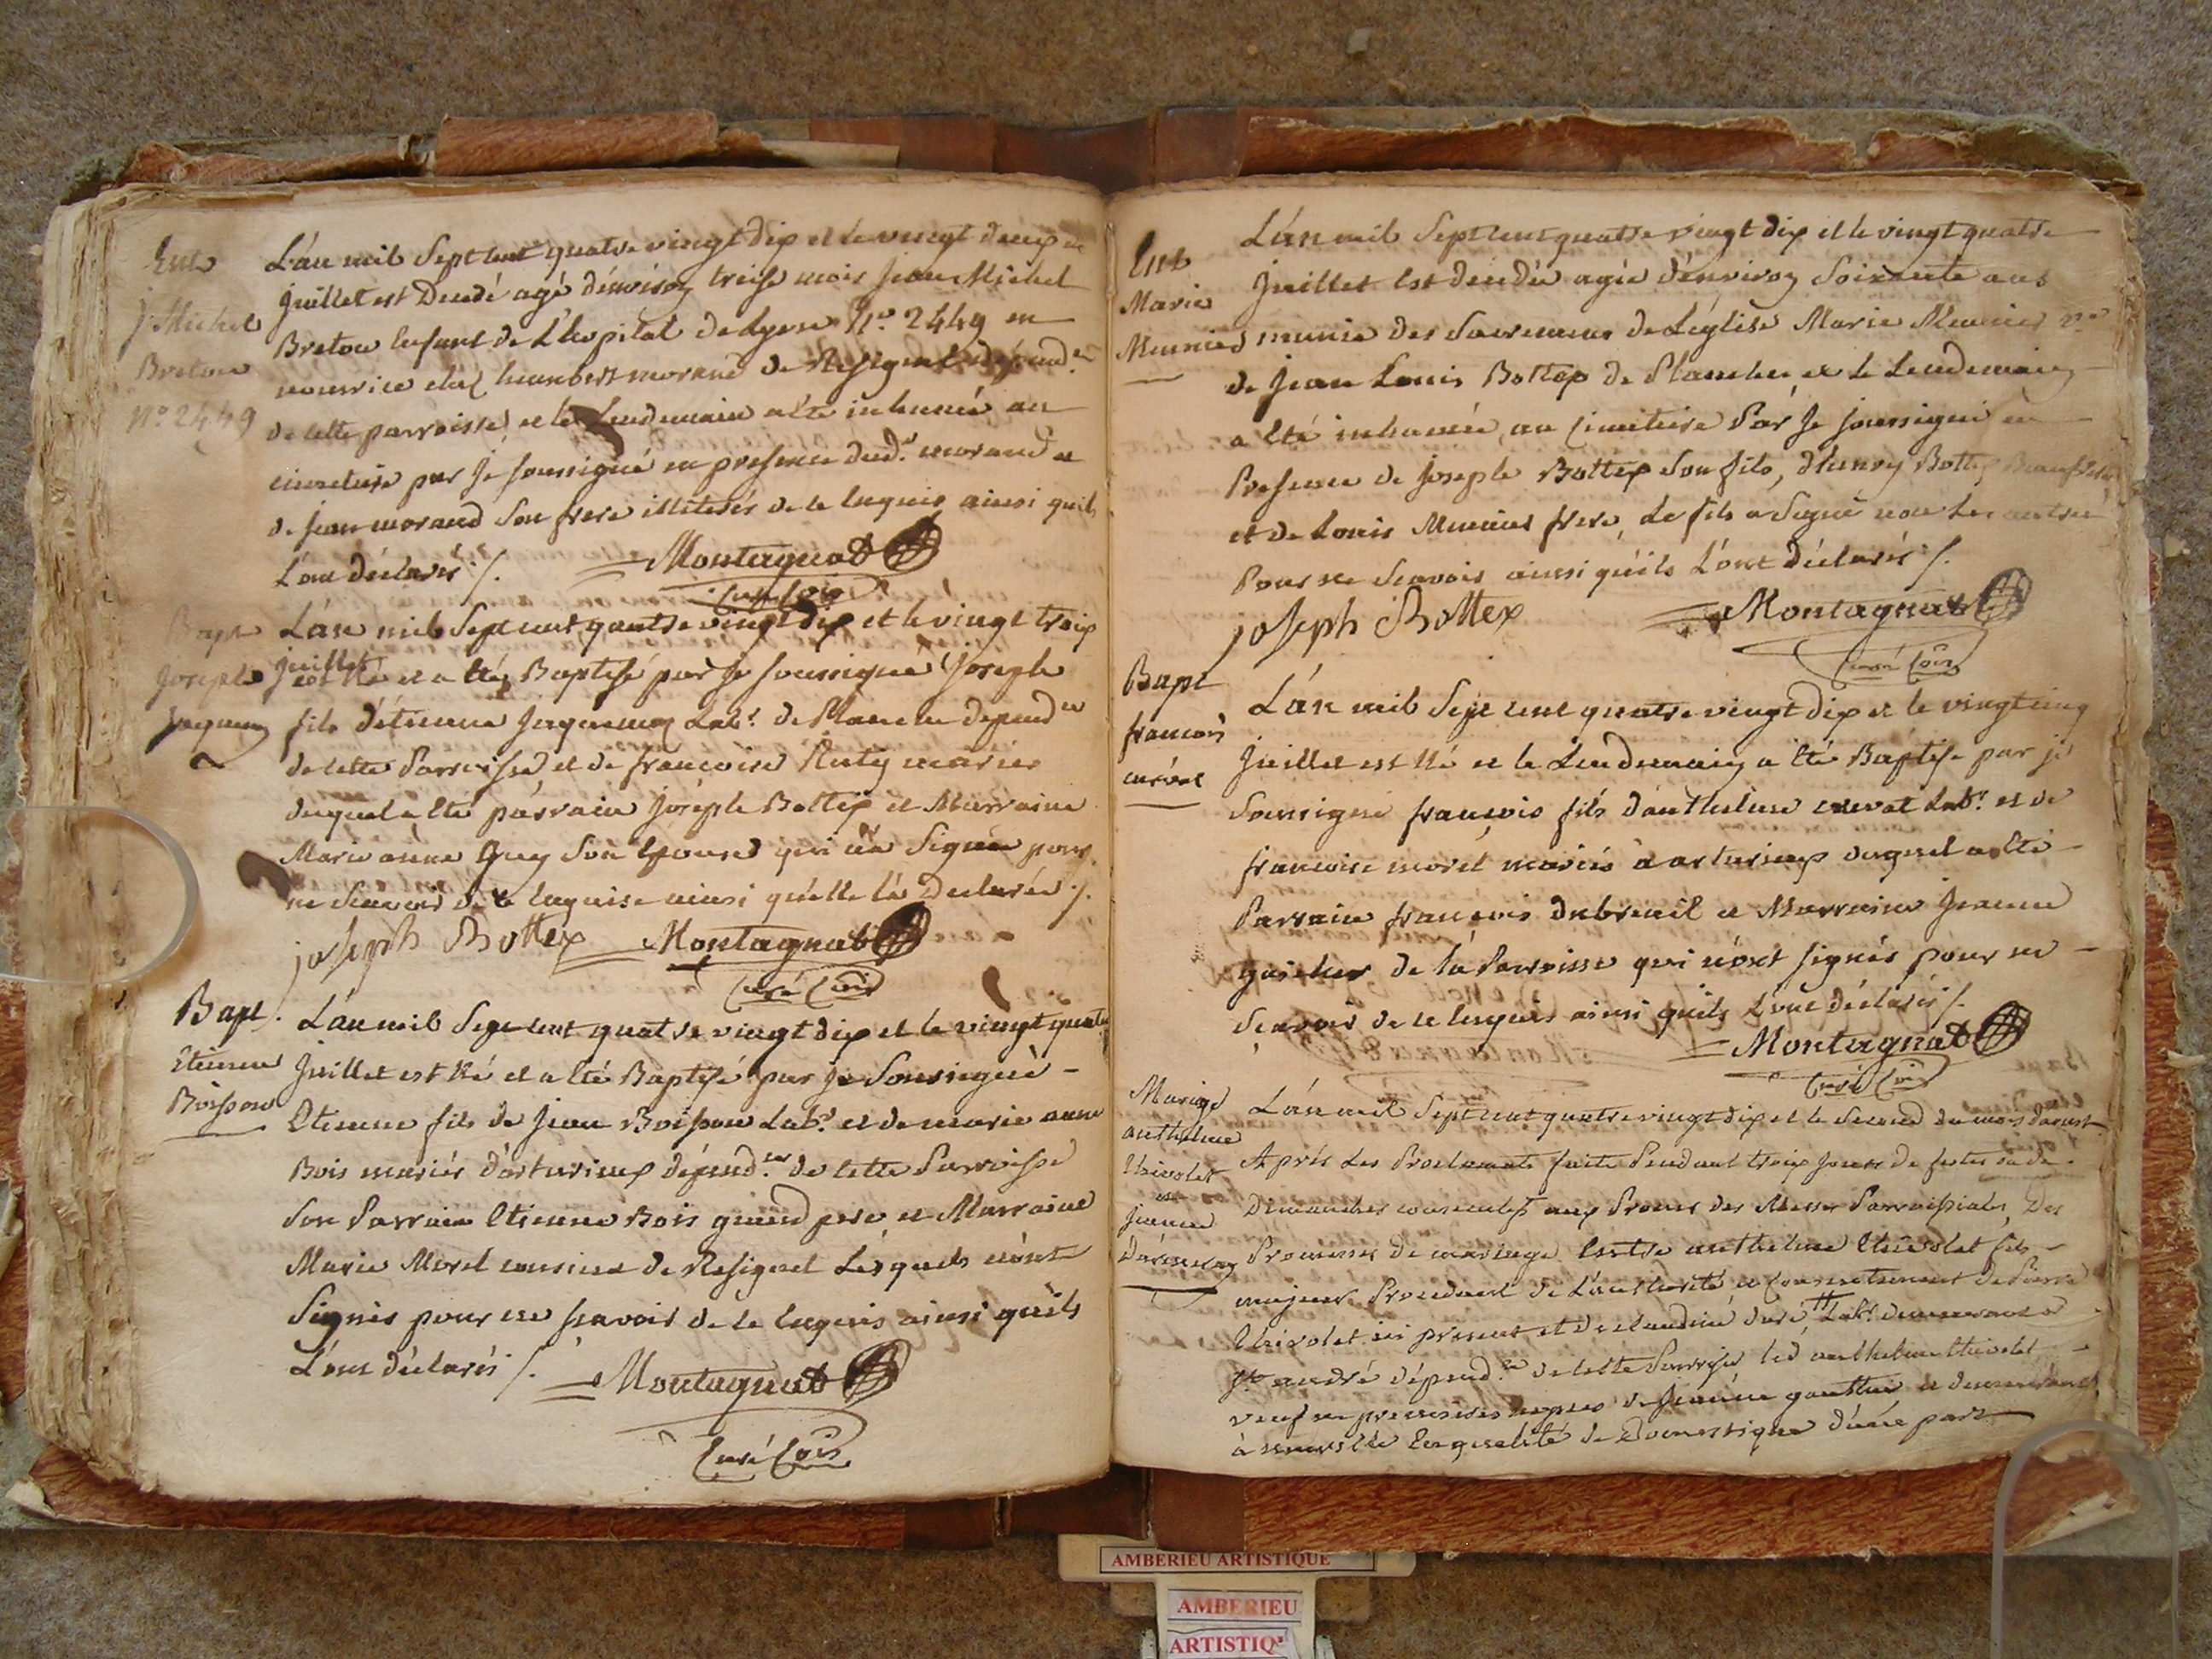 Ent
J Michel
Breton
No. 2449
L'an mil Sept cent quatre vingt dix et le vingt deux
juillet est Decedé agé d'environ treise mois Jean Michel
Breton enfant de L'hopital de Lyon No. 2449 en
nourrice chez humbert morand de Resignel depend.
de cette parroisse et le Lendemain a été inhumé au
cimetiere par Je soussigné en presence dud. morand et
de jean morand son frere illiterés de ce enquis ainsi quils
L'ont déclarés /.
Montagnat
Curé Coin
Bapt
Joseph
L'an mil Sept cent quatre vingt dix et le vingt trois
juillet est Né et a été Baptisé par Je soussigné Joseph
fils d'étienne Labr. de Planche depend
de cette Parroisse et de francoise mariés
duquel a été parrain joseph Bottex et Marraine
Marie anne Guy Son Epouse qui n'a Signée pour
ne Scavoir de ce enquise ainsi quelle la Declarée /.
joseph Bottex Montagnat
Curé Coin
Bapt.
Etienne
Boisson
L'an mil Sept cent quatre vingt dix et le vingt quatre
Juillet est Né et a été Baptisé par Je Soussigné
Etienne fils de Jean Boisson Labr. et de marie anne
Bois mariés d'arturieux dépend. de cette Parroisse
Son Parrain Etienne Bois grand pere et Marraine
Marie Morel cousine de Resignel Lesquels n'ont
Signés pour ne scavoir de ce enquis ainsi quils
L'ont déclarés /.
Montagnat
Curé Coin
Ent
Marie
Munier
L'an mil Sept cent quatre vingt dix et le vingt quatre
Juillet Est decedée agée d'environ Soixante ans
munie des Sacremens de L'église Marie Munier ve
de Jean Louis Bottex de Planche et le Lendemain
a été inhumée au Cimetiere Par Je soussigné en
Presence de Joseph Bottex Son fils, d'henry Bottex Beaufrere
et de Louis Munier frere, Le fils a Signé non Les autres
Pour ne Scavoir ainsi qu'ils L'ont déclarés /.
joseph Bottex Montagnat
Curé Coin
Bapt
francois
L'an mil Sept cent quatre vingt dix et le vingt cinq
Juillet est Né et le Lendemain a été Baptisé par je
Soussigné françois fils d'anthelme Labr. et de
francoise morel mariés a arturieux duquel a été
Parrain francois dubreuil et Marraine Jeanne
de la Parroisse qui n'ont signés pour ne
Sçavoir de ce enquis ainsi quils L'ont déclarés /.
Montagnat
Curé Coin
Mariage
anthelme
Chivolet
et
jeanne
L'an mil Sept cent quatre vingt dix et le Second du mois d'aoust
Aprés Les Proclamats faits Pendant trois Jours de festes ou de
Dimanches consecutifs aux Prones des Messes Parroissiales, Des
Promesses de mariage Entre anthelme Chivolet fils
majeur Procedant de L'authorité et Consentement de Pierre
Chivolet ici present et de claudine Labr. demeurant a
St. andré dépend. de cette Parroisse led anthelme Chivolet
veuf en premieres nopces de Jeanne gouttier et demeurant
à En qualité de Domestique d'une part
AMBERIEU ARTISTIQUE
AMBERIEU
ARTISTIQ'